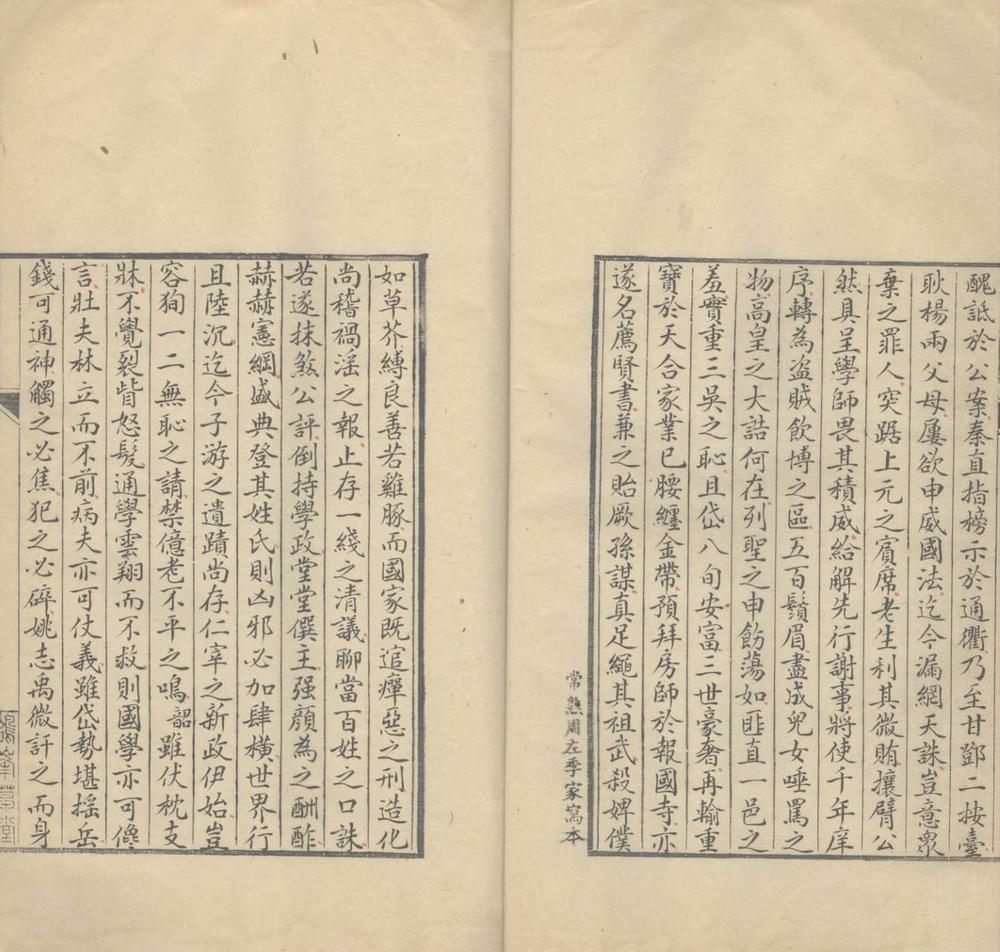 醜詆於公案秦直指榜示於通衢乃至甘鄧二按臺
耿楊兩父母屢欲申威國法迄今漏網天誅豈意衆
棄之罪人突踞上元之賓席老生利其微賄攘臂公
然具呈學師畏其積威給解先行謝事將使千年庠
序轉為盜賊飲博之區五百鬚眉盡成兒女唾罵之
物高皇之大誥何在列聖之申飭蕩如匪直一邑之
羞實重三吳之恥且岱八旬安富三世豪奢再輸重
寶於天合家業已腰纏金帶預拜房師於報國寺亦
遂名薦賢書兼之貽厥孫謀真足繩其祖武殺婢僕
常熟周左季家寫本
如草芥縛良善若雞豚而國家既逭癉惡之刑造化
尚稽禍淫之報止存一綫之清議聊當百姓之口誅
若遂抹煞公評倒持學政堂堂僎主强顏為之酬酢
赫赫憲綱盛典登其姓氏則凶邪必加肆橫世界行
且陸沉迄今子游之遺蹟尚存仁宰之新政伊始豈
容狥一二無恥之請禁億老不平之鳴韶雖伏枕支
牀不覺裂眥怒髮通學雲翔而不救則國學亦可儳
言壯夫林立而不前病夫亦可仗義雖岱勢堪搖岳
錢可通神觸之必焦犯之必碎姚志禹微訐之而身